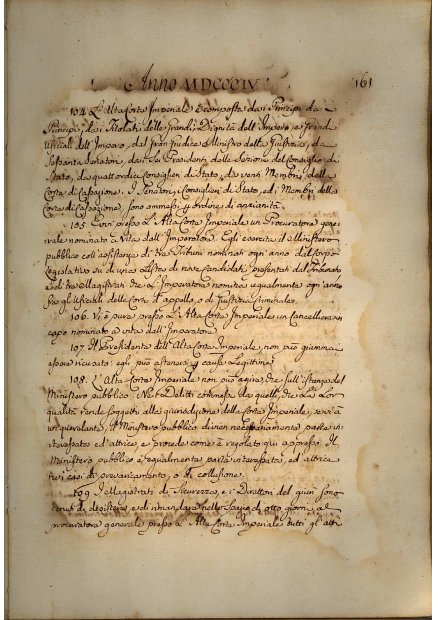 Anno MDCCCIV 161
104. L'Alta Corte Imperiale è composta dai Principi da
Principi, dai Titolati delle Grandi Dignità dell'Impero, e Grand
Uficiali dell'Impero, dal Gran Giudice Ministro della Giustizia, da
Sessanta Senatori, dai Sei Presidenti delle Sezioni del Consiglio di
Stato, da quattordici Consiglieri di Stato, da venti Membri della
Corte di Cassazione. I Senatori, i Consiglieri di Stato, ed i Membri della
Corte di Cassazione, sono ammessi per ordine di anzianità.
105. Evvi presso L'Alta Corte Imperiale un Procuratore gene-
rale nominato a Vita dall'Imperatore. Egli esercita il Ministero
pubblico coll'assistenza di tre Tribuni nominati ogni anno dal corpo
Legislativo su di una Lista di nove Candidati presentati dal Tribunato
e di tre Magistrati che L'Imperatore nomina ugualmente ogni anno
fra gli Ufficiali delle Corti d'appello, o di Giustizia Criminale.
106. Vi è pure presso L'Alta Corte Imperiale un Cancelliere in
capo nominato a vita dall'Imperatore
107. Il Presidente dell'Alta Corte Imperiale non può giammai
essere ricusato: egli può astenersi per cause Legittime.
108. L'Alta Corte Imperiale non può agire, che sull'istanza del
Ministero pubblico. Ne' Delitti commessi da quelli, che La Lor
qualità rende soggetti alla giurisdizione della Corte Imperiale, se vi è
un querelante, il Ministero pubblico divien necessariamente parte in-
teressata ed attrice, e procede come è regolato qui appresso. Il
Ministero pubblico è ugualmente parte interessata, ed attrice
nei casi di prevaricamento, o di collusione.
109. I Magistrati di Sicurezza, e i Direttori del giurì sono
tenuti di desistere, e di rimandare nello Spazio di otto giorni, al
procuratore generale presso L'Alta Corte Imperiale tutti gl'atti